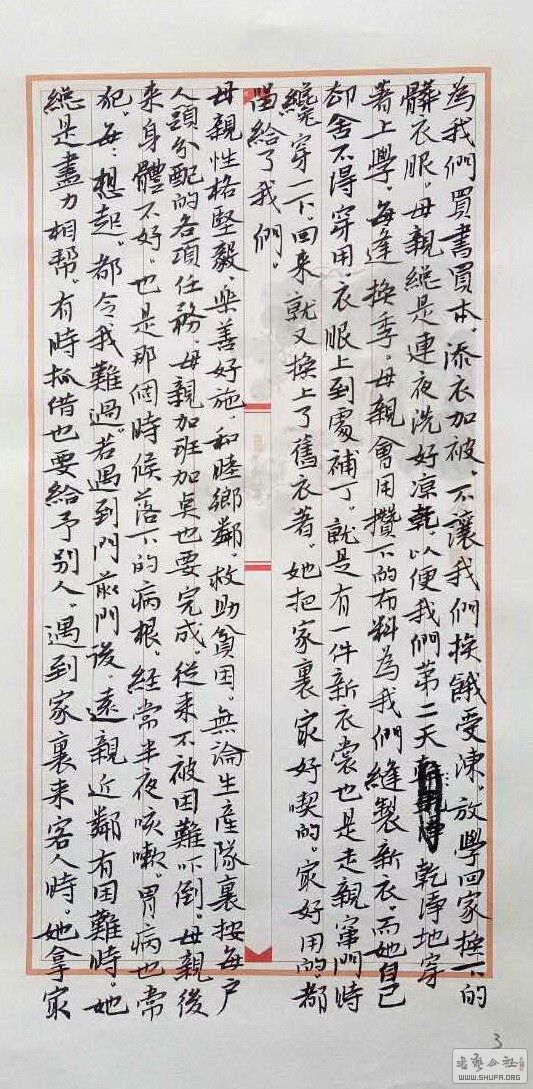 為我們買書買本。添衣加被。不讓我們挨餓受凍。放學回家換下的
髒衣服。母親總是連夜洗好凉乾。以便我們第二天乾淨地穿
著上學。每逢換季。母親會用攢下的布料為我們縫製新衣。而她自己
却舍不得穿用。衣服上到處補丁。就是有一件新衣裳也是走親竄門時
纔穿一下。回來就又換上了舊衣著。她把家裏最好喫的。最好用的都
留給了我們。
母親性格堅毅。樂善好施。和睦鄉鄰。救助貧困。無論生產隊裏按每户
人頭分配的各項任務。母親加班加桌也要完成。從来不被困難吓倒。母親後
来身體不好。也是那個時候落下的病根。經常半夜咳嗽。胃病也常
犯。每:想起。都令我難過。若遇到門前門後。遠親近鄰有困難時。她
總是盡力相幫。有時抓借也要給予别人。遇到家裏来客人時。她拿家
3
書藝公社
WWW.SHUFA.ORG